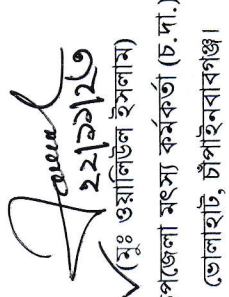 ২২|১১|২৩
(মুঃ ওয়ালিউল ইসলাম)
উপজেলা মৎস্য কর্মকর্তা (চ.দা.)
ভোলাহাট, চাঁপাইনবাবগঞ্জ।